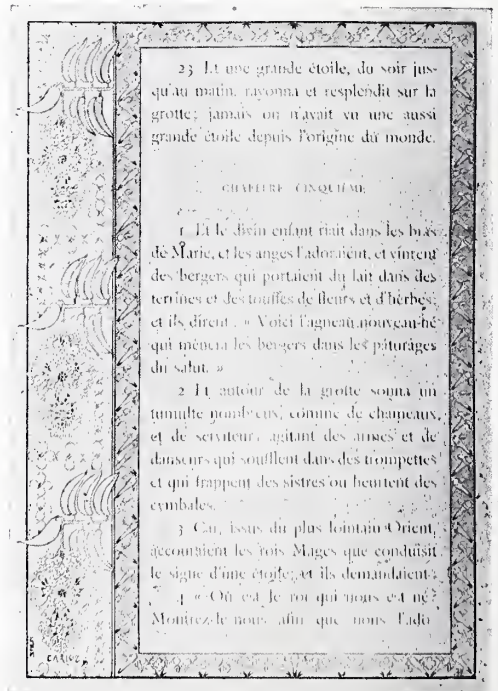 23 Et une grande étoile, du soir jus-
qu'au matin, rayonna et resplendit sur la
grotte; jamais on n'avait vu une aussi
grande étoile depuis l'origine du monde.
CHAPITRE CINQUIÈME
1 Et le divin enfant riait dans les bras
de Marie, et les anges l'adoraient, et vinrent
des bergers qui portaient du lait dans des
terrines et des touffes de fleurs et d'herbes;
et ils dirent : « Voici l'agneau nouveau-né
qui mènera les bergers dans les pâturages
du salut. »
2 Et autour de la grotte sonna un
tumulte nombreux, comme de chameaux,
et de serviteurs agitant des armes et de
danseurs qui soufflent dans des trompettes
et qui frappent des sistres ou heurtent des
cymbales.
3 Car, issus du plus lointain Orient,
accouraient les rois Mages que conduisit
le signe d'une étoile; et ils demandaient :
4 « Où est le roi qui nous est né?
Montrez-le nous afin que nous l'ado-